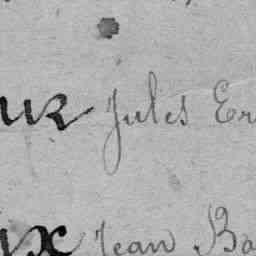 ux Jules Er
ux Jean Ba